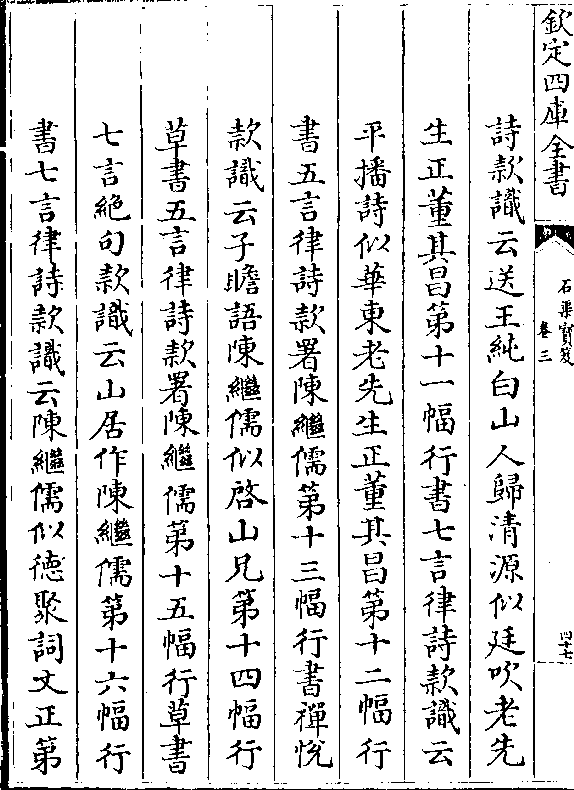 欽定四庫全書
石渠寶笈
卷三
四十七
詩款識云送王純白山人歸清源似廷吹老先
生正董其昌第十一幅行書七言律詩款識云
平播詩似華東老先生正董其昌第十二幅行
書五言律詩款署陳繼儒第十三幅行書禪悅
款識云子瞻語陳繼儒似啓山兄第十四幅行
草書五言律詩款署陳繼儒第十五幅行草書
七言絶句款識云山居作陳繼儒第十六幅行
書七言律詩款識云陳繼儒似德聚詞丈正第